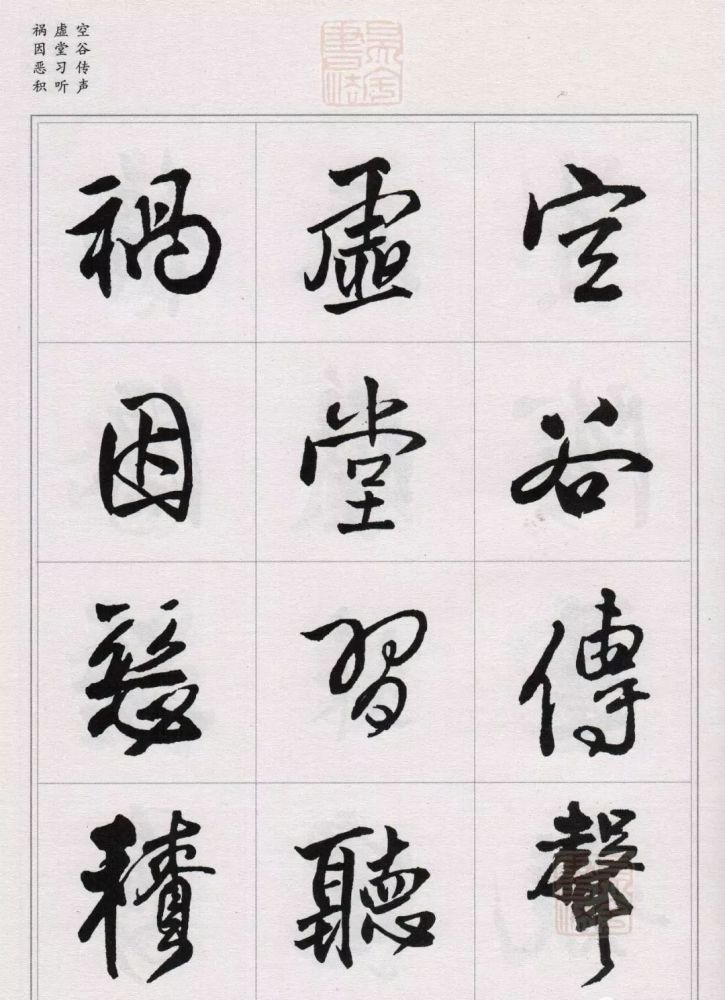 空谷传声
虚堂习听
祸因恶积
空谷傳聲
虚堂習聽
禍因惡積